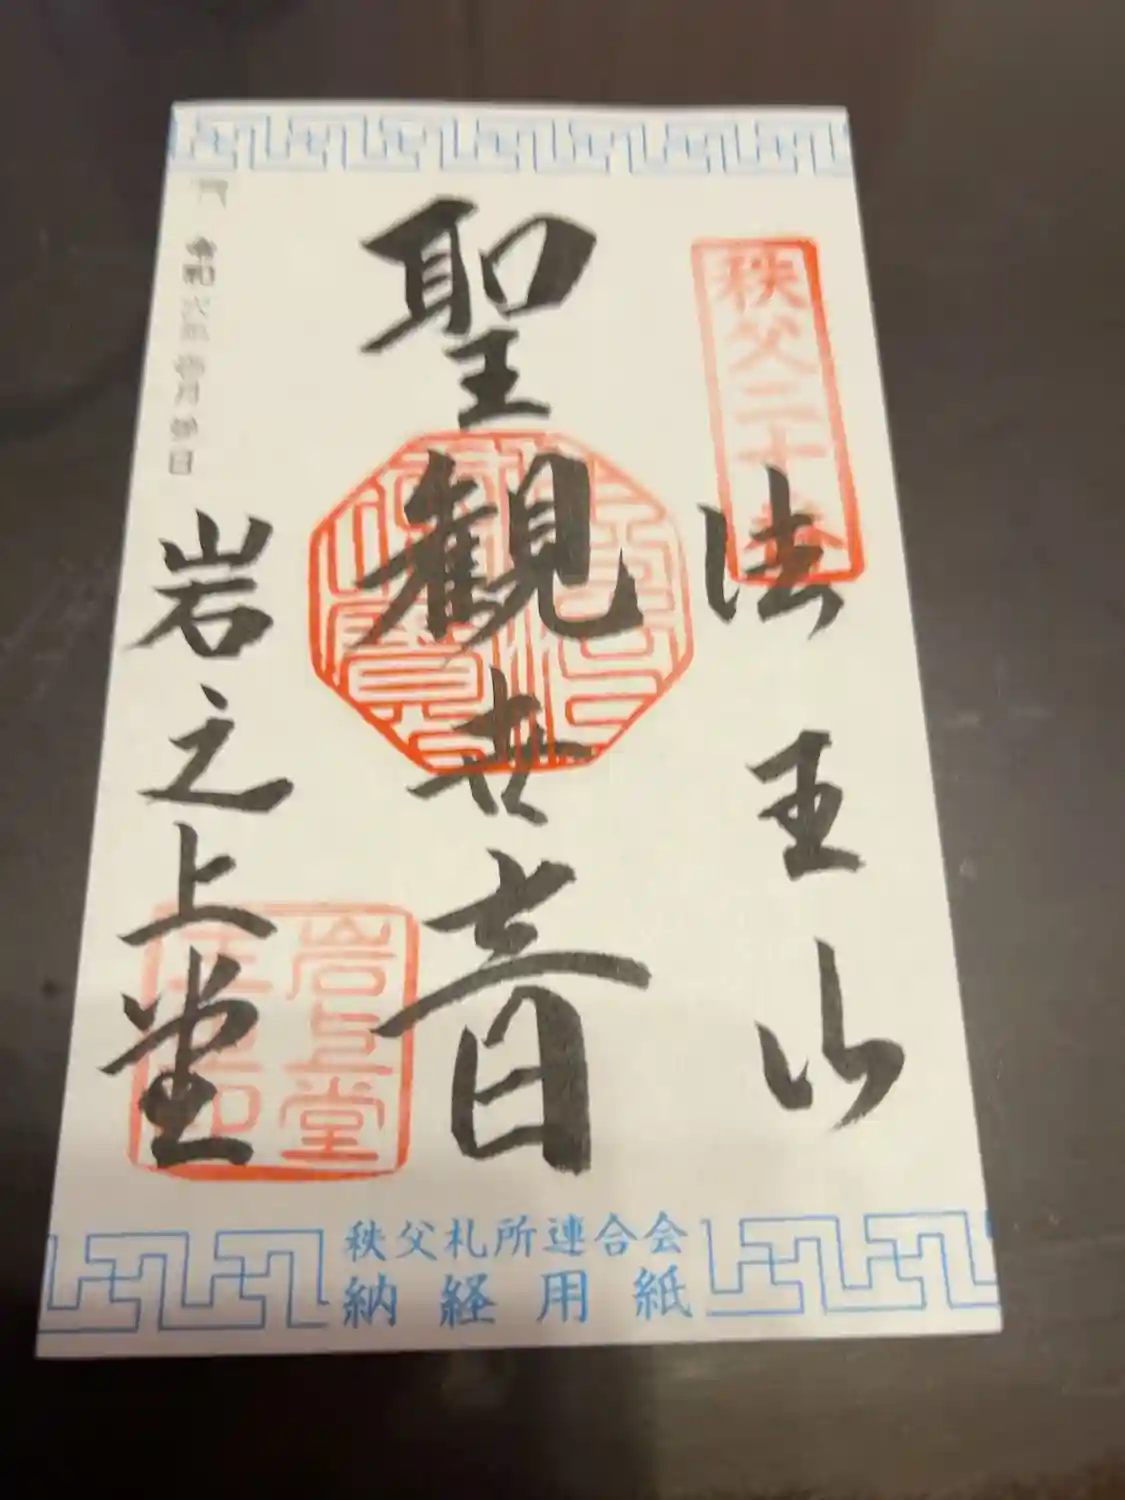 秩父二十番
法王山
聖観世音
岩之上堂
岩上堂
秩父札所連合会
納経用紙